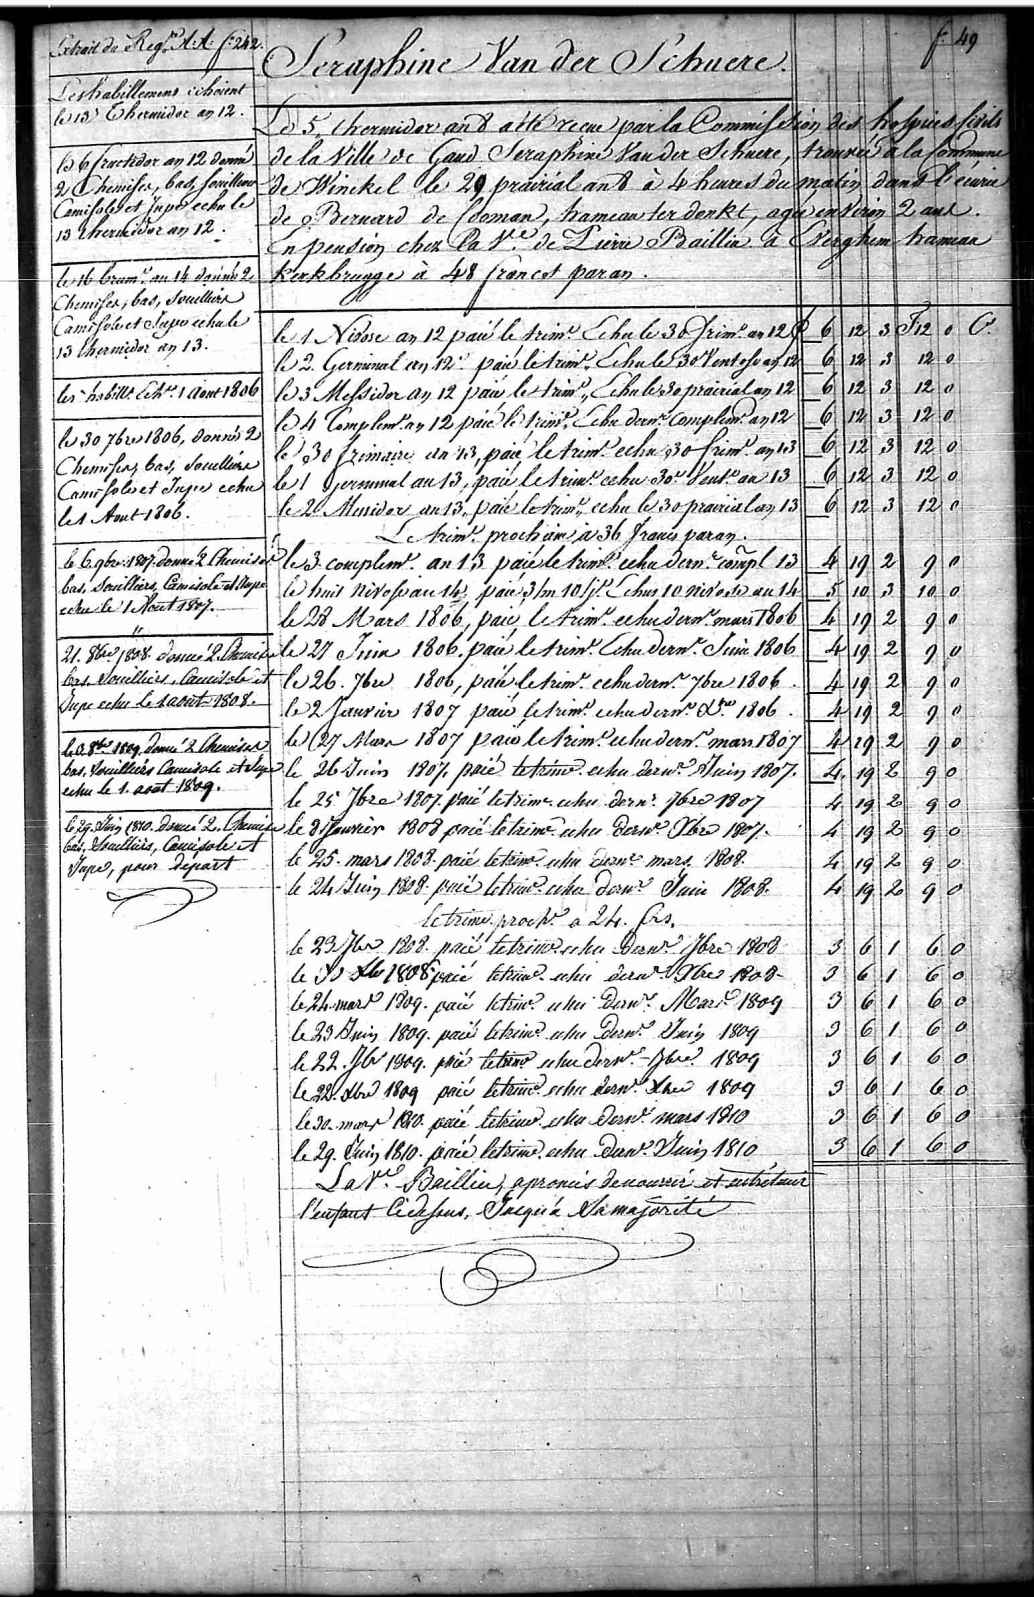 f. 49
Extrait du Reg.re A.A. f. 242.
Les habillemens échoient
le 13 Thermidor an 12.
le 6 fructidor an 12 donné
2 Chemises, bas, souilliers
Camisole et Jupe echu le
13 thermidor an 12.
le 16 brum.e an 14 donné 2
Chemises, bas, souilliers
Camisole et Jupe echu le
13 thermidor an 13.
les habill.s Ech.s 1 Aout 1806
le 30 7bre 1806, donnés 2
Chemises, bas, souilliers
Camisole et Jupe echu
le 1 Aout 1806.
le 6 9bre 1807. donné 2 Chemises
bas, souilliers, Camisole et Jupe
echu le 1 Aout 1807.
21. 8bre 1808. donné 2 Chemises
bas, souilliers, Camisole et
Jupe echu le 1 aout 1808.
le 3. 8bre 1809. donné 2 Chemises
bas, souilliers Camisole et Jupe
echu le 1. aout 1809.
le 29. Juin 1810. donné 2. Chemises
bas, souilliers, Camisole et
Jupe, pour départ
Seraphine Van der Schuere.
Le 5 thermidor an 8 a été recue par la Commission des hospices Civils
de la Ville de Gand Seraphine Van der Schuere, trouvée a la Commune
de Winckel le 29 prairial an 8 à 4 heures du matin dans l'ecurie
de Bernard de Cooman, hameau ter donkt, agée environ 2 ans.
En pension chez la V.e de Pierre Baillin à Everghem hameau
Kerkbrugge à 48 francs par an.
le 1 Nivose an 12 paié le trim.e Echu le 30 frim.e an 12 £ 6 12 3 F 12 0 C.
le 2. Germinal an 12. paié le trim.e Echu le 30 Ventose an 12 6 12 3 12 0
le 3 Messidor an 12 paié le trim.e Echu le 30 prairial an 12 6 12 3 12 0
le 4 Complem.e an 12 paié le trim.e Echu dern.r Complem.e an 12 6 12 3 12 0
le 30 frimaire an 13, paié le trim.e echu 30 frim.e an 13 6 12 3 12 0
le 1 germinal an 13, paié le trim.e echu 30.e Vent.e an 13 6 12 3 12 0
le 2 Messidor an 13, paié le trim.e echu le 30 prairial an 13 6 12 3 12 0
Le trim.e prochain à 36 francs par an.
le 3 complem.e an 13 paié le trim.e echu dern.r compl 13 4 19 2 9 0
le huit nivose an 14, paié 3/m 10 js. Echus 10 nivose an 14 5 10 3 10 0
le 28 Mars 1806, paié le trim.e echu dern.r mars 1806 4 19 2 9 0
le 27 Juin 1806, paié le trim.e Echu dern.r Juin 1806 4 19 2 9 0
le 26. 7bre 1806, paié le trim.e echu dern.r 7bre 1806. 4 19 2 9 0
le 2 Janvier 1807 paié le trim.e echu dern.r Xbre 1806. 4 19 2 9 0
le 27 Mars 1807 paié le trim.e echu dern.r mars 1807 4 19 2 9 0
le 26 Juin 1807. paié le trim.e echu dern.r Juin 1807. 4 19 2 9 0
le 25 7bre 1807. paié le trim.e echu dern.r 7bre 1807 4 19 2 9 0
le 8 Janvier 1808 paié le trim.e echu dern.r Xbre 1807. 4 19 2 9 0
le 25. mars 1808. paié le trim.e echu dern.r mars 1808. 4 19 2 9 0
le 24 Juin 1808. paié le trim.e echu dern.r Juin 1808. 4 19 2 9 0
le trim.e proch.n a 24. frs.
le 23 7bre 1808. paié le trim.e echu dern.r 7bre 1808 3 6 1 6 0
le Xbre 1808. paié le trim.e echu dern.r Xbre 1808. 3 6 1 6 0
le 24 mars 1809. paié le trim.e echu dern.r Mars 1809 3 6 1 6 0
le 23 Juin 1809. paié le trim.e echu dern.r Juin 1809 3 6 1 6 0
le 22. 7bre 1809. paié le trim.e echu dern.r 7bre 1809 3 6 1 6 0
le 22. Xbre 1809 paié le trim.e echu dern.r Xbre 1809 3 6 1 6 0
le 30. mars 1810. paié le trim.e echu dern.r mars 1810 3 6 1 6 0
le 29. Juin 1810. paié le trim.e echu dern.r Juin 1810 3 6 1 6 0
La V.e Baillin, a promis de nourrir et entretenir
l'enfant Ci dessus, Jusqu'à Sa majorité